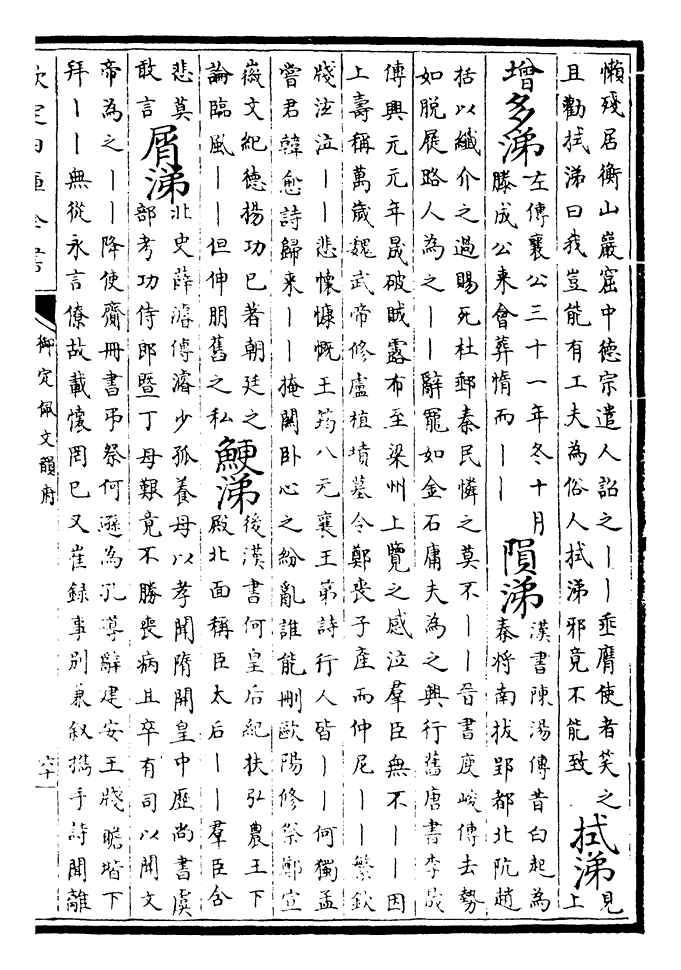 懶殘居衡山巖窟中德宗遣人詔之丨丨垂膺使者笑之
且勸拭涕曰我豈能有工夫為俗人拭涕邪竟不能致
拭涕
見
上
增多涕
左傳襄公三十一年冬十月
滕成公來會葬惰而丨丨
隕涕
漢書陳湯傳昔白起為
秦將南拔郢都北阬趙
括以纖介之過賜死杜郵秦民憐之莫不丨丨晉書庾峻傳去勢
如脫屣路人為之丨丨辭寵如金石庸夫為之興行舊唐書李晟
傳興元元年晟破賊露布至梁州上覽之感泣羣臣無不丨丨因
上壽稱萬歲魏武帝修盧植墳墓令鄭喪子產而仲尼丨丨繁欽
牋泫泣丨丨悲懷慷慨王筠八元襄王第詩行人皆丨丨何獨孟
嘗君韓愈詩歸来丨丨掩關卧心之紛亂誰能刪歐陽修祭鄭宣
徽文紀德揚功已著朝廷之
論臨風丨丨但伸朋舊之私
鯁涕
後漢書何皇后紀扶弘農王下
殿北面稱臣太后丨丨羣臣含
悲莫
敢言
屑涕
北史薛濬傳濬少孤養母以孝聞隋開皇中歷尚書虞
部考功侍郎暨丁母艱竟不勝喪病且卒有司以聞文
帝為之丨丨降使齎冊書弔祭何遜為孔導辭建安王牋瞻堦下
拜丨丨無從永言僚故載懷罔已又崔録事別兼叙攜手詩聞離
欽定四庫全書
御定佩文韻府
六十一